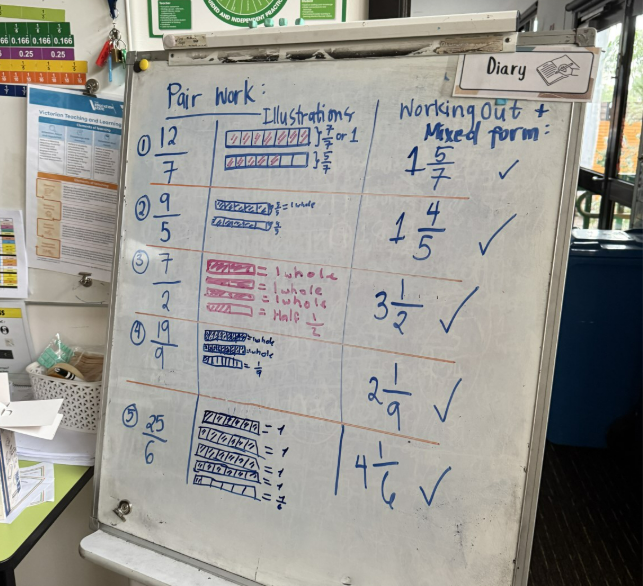 AND INDEPENDENT PRACTICE
0.166 0.166 0.166
0.25 0.25
Victorian Teaching and Learning
Diary
Pair Work:
Illustrations
Working Out +
Mixed form:
① 12/7
} 7/7 or 1
} 5/7
1 5/7 ✓
② 9/5
5/5 = 1 whole
4/5
1 4/5 ✓
③ 7/2
= 1 whole
= 1 whole
= 1 whole
= Half 1/2
3 1/2 ✓
④ 19/9
= whole
= whole
= 1/9
2 1/9 ✓
⑤ 25/6
= 1
= 1
= 1
= 1
= 1/6
4 1/6 ✓